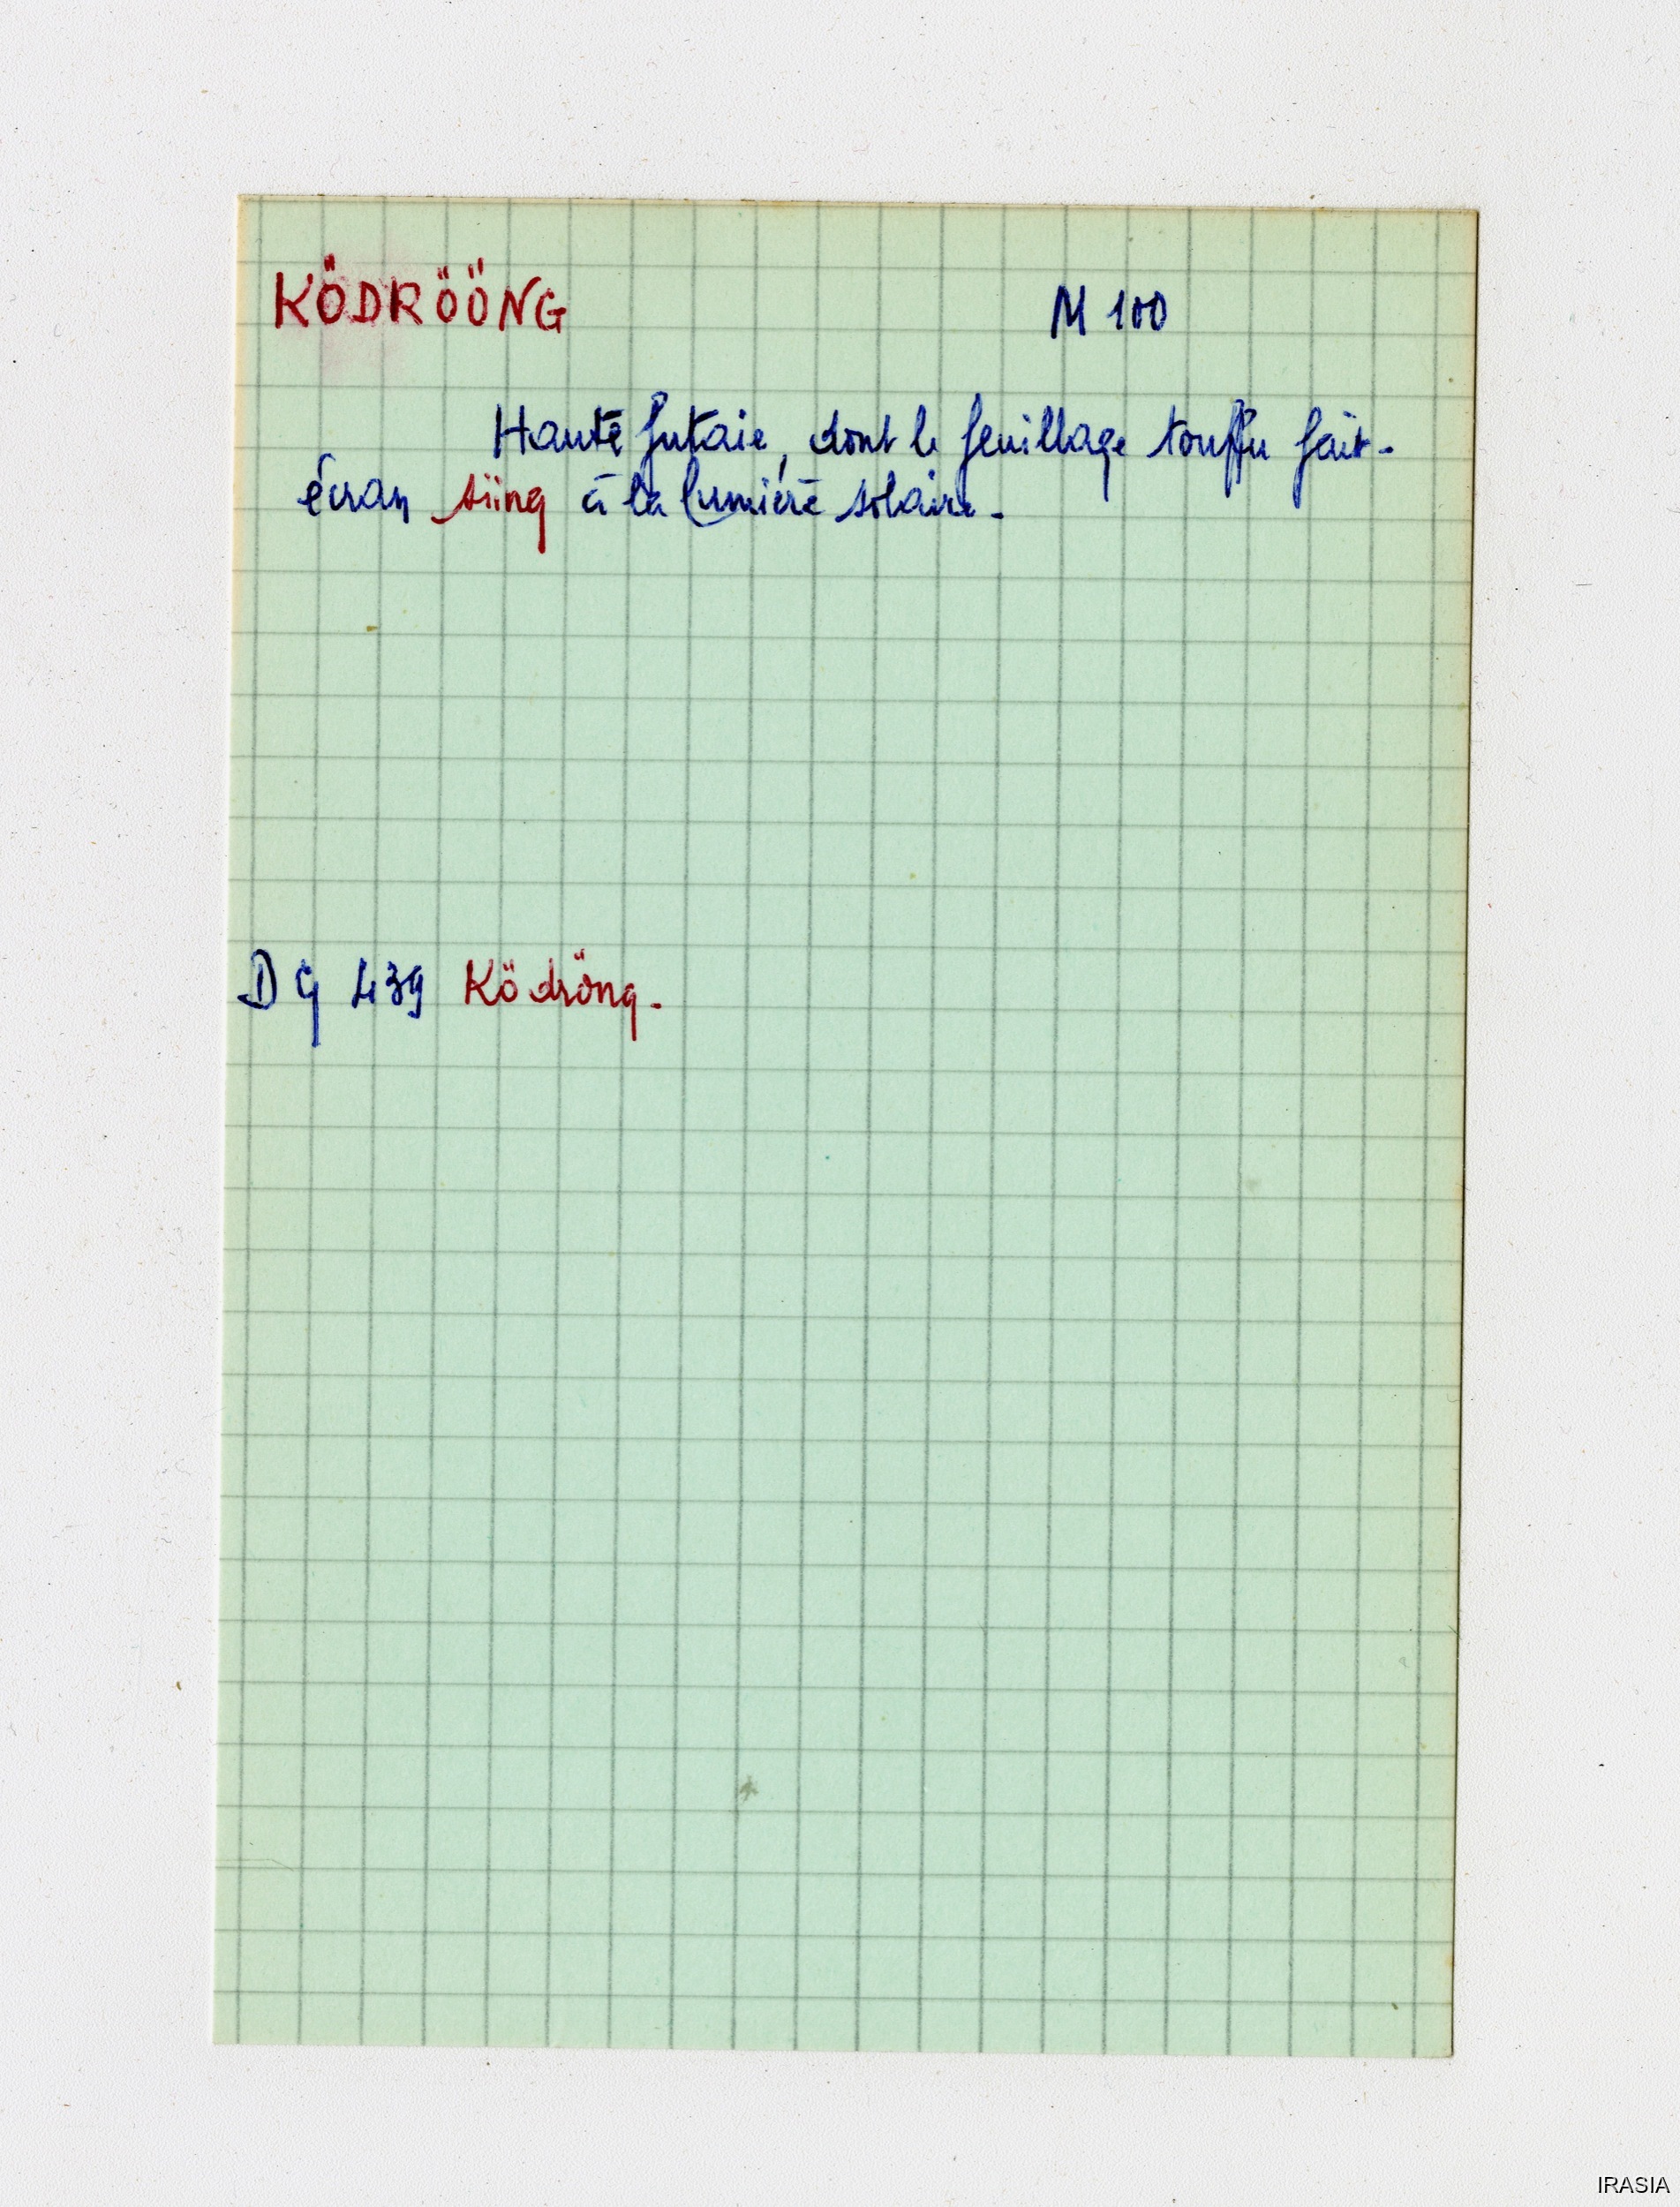 KÖDRÖÖNG M 100
Haute futaie, dont le feuillage touffu fait-
écran siing à la lumière solaire.
DG 439 Ködröng.
IRASIA